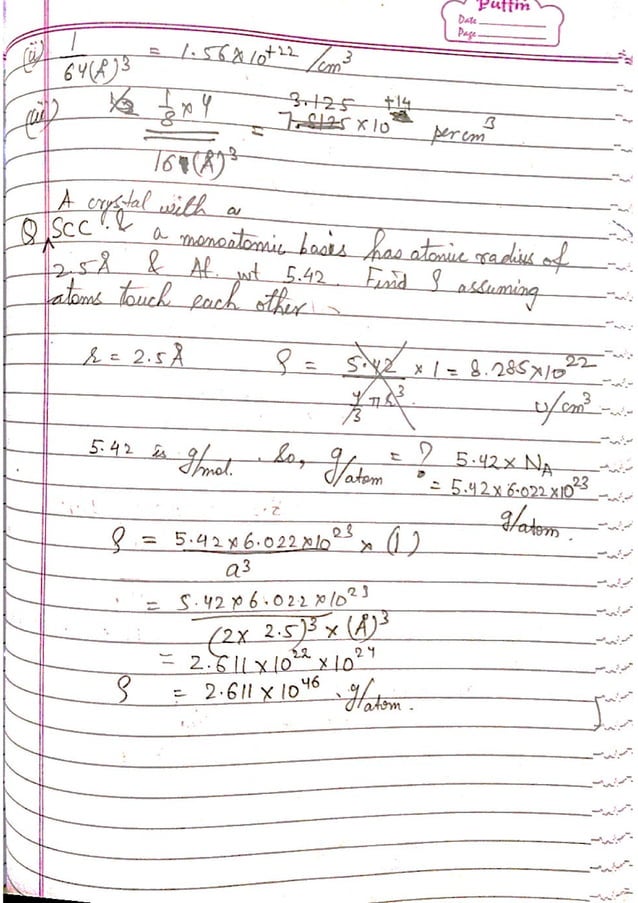 Puffin
Date
Page
(ii) 1 / 64(Å)³ = 1.56×10⁺²² /cm³
(iii) 1/8 × 4 / 16 (Å)³ = 3.125 × 10⁺¹⁴ per cm³
A crystal with a
Q SCC & a monoatomic basis has atomic radius of
2.5Å & At. wt 5.42. Find ρ assuming
atoms touch each other.
r = 2.5Å ρ = 5.42 / 4/3 πr³ × 1 = 8.285×10²² u/cm³
5.42 is g/mol. So, g/atom = ? 5.42 × N_A
= 5.42×6.022×10²³
g/atom.
ρ = 5.42×6.022×10²³ / a³ × (1)
= 5.42×6.022×10²³ / (2×2.5)³ × (Å)³
= 2.611×10²²×10²⁴
ρ = 2.611×10⁴⁶ g/atom.